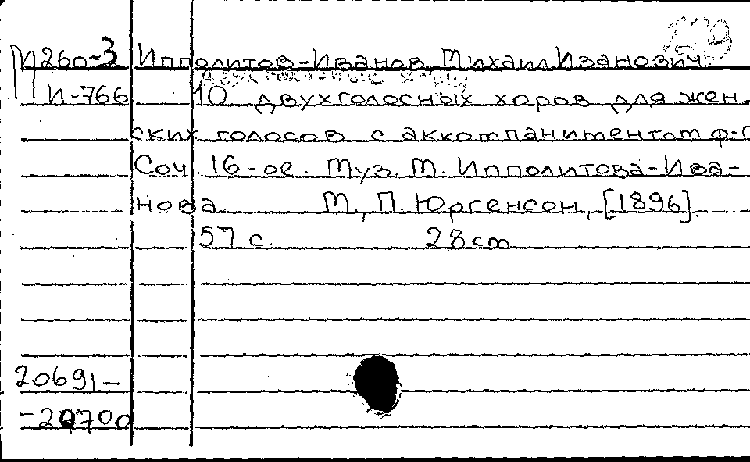 М260-3 Ипполитов-Иванов, Михаил Иванович.
И-766 10 двухголосных хоров для жен.
ских голосов с аккомпаниментом ф-п
Соч. 16-ое. Муз. М. Ипполитова-Ива-
нова. М., П. Юргенсон, [1896]
57 с. 28 cm
20691-
-20700